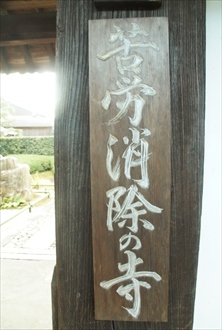 苦労消除の寺